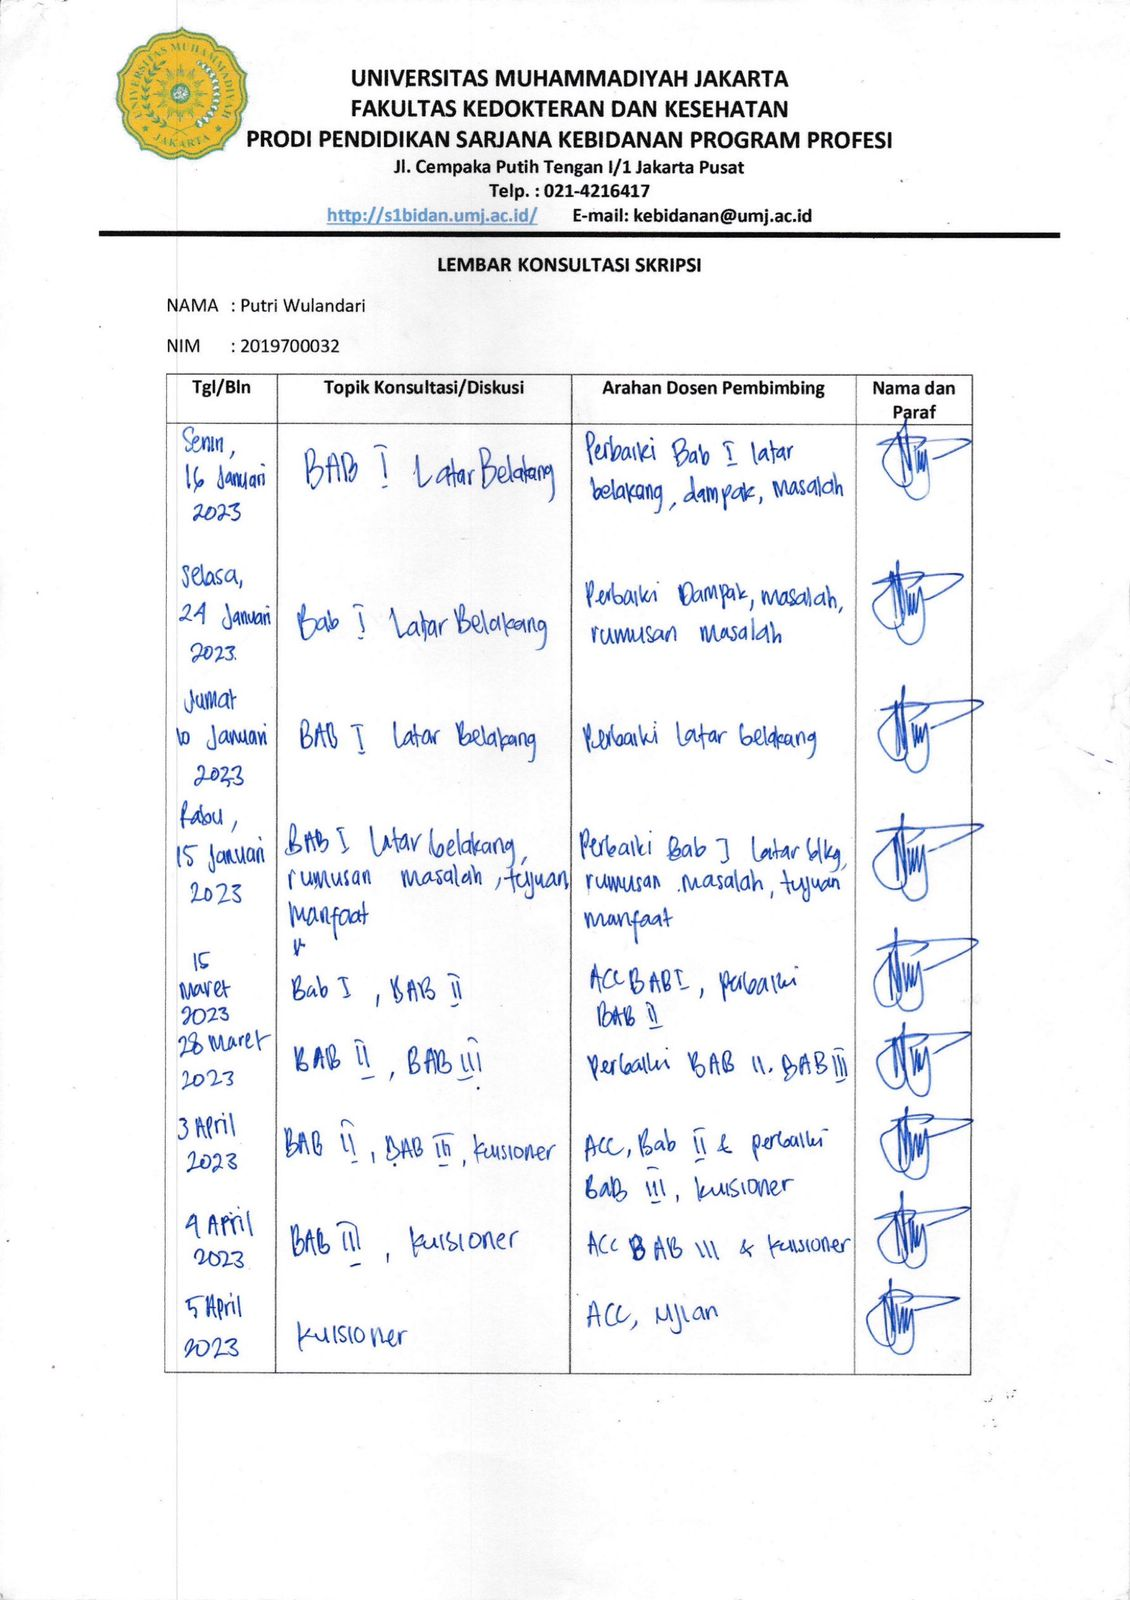 UNIVERSITAS MUHAMMADIYAH JAKARTA
UNIVERSITAS MUHAMMADIYAH JAKARTA
FAKULTAS KEDOKTERAN DAN KESEHATAN
PRODI PENDIDIKAN SARJANA KEBIDANAN PROGRAM PROFESI
Jl. Cempaka Putih Tengan I/1 Jakarta Pusat
Telp. : 021-4216417
http://s1bidan.umj.ac.id/ E-mail: kebidanan@umj.ac.id
LEMBAR KONSULTASI SKRIPSI
NAMA : Putri Wulandari
NIM : 2019700032
Tgl/Bln Topik Konsultasi/Diskusi Arahan Dosen Pembimbing Nama dan
Paraf
Senin,
16 Januari
2023
BAB I Latar Belakang
Perbaiki Bab I latar
belakang, dampak, masalah
Selasa,
24 Januari
2023.
Bab I Latar Belakang
Perbaiki Dampak, masalah,
rumusan masalah
Jumat
10 Januari
2023
BAB I Latar Belakang
Perbaiki Latar belakang
Rabu,
15 Januari
2023
BAB I Latar belakang,
rumusan masalah, tujuan
manfaat
Perbaiki Bab I Latar blkg,
rumusan masalah, tujuan
manfaat
15
Maret
2023
Bab I, BAB II
ACC BAB I, perbaiki
BAB II
28 Maret
2023
BAB II, BAB III
Perbaiki BAB II. BAB III
3 April
2023
BAB II, BAB III, kuisioner
ACC, Bab II & perbaiki
Bab III, kuisioner
4 April
2023
BAB III, kuisioner
ACC BAB III & kuisioner
5 April
2023
kuisioner
ACC, Ujian